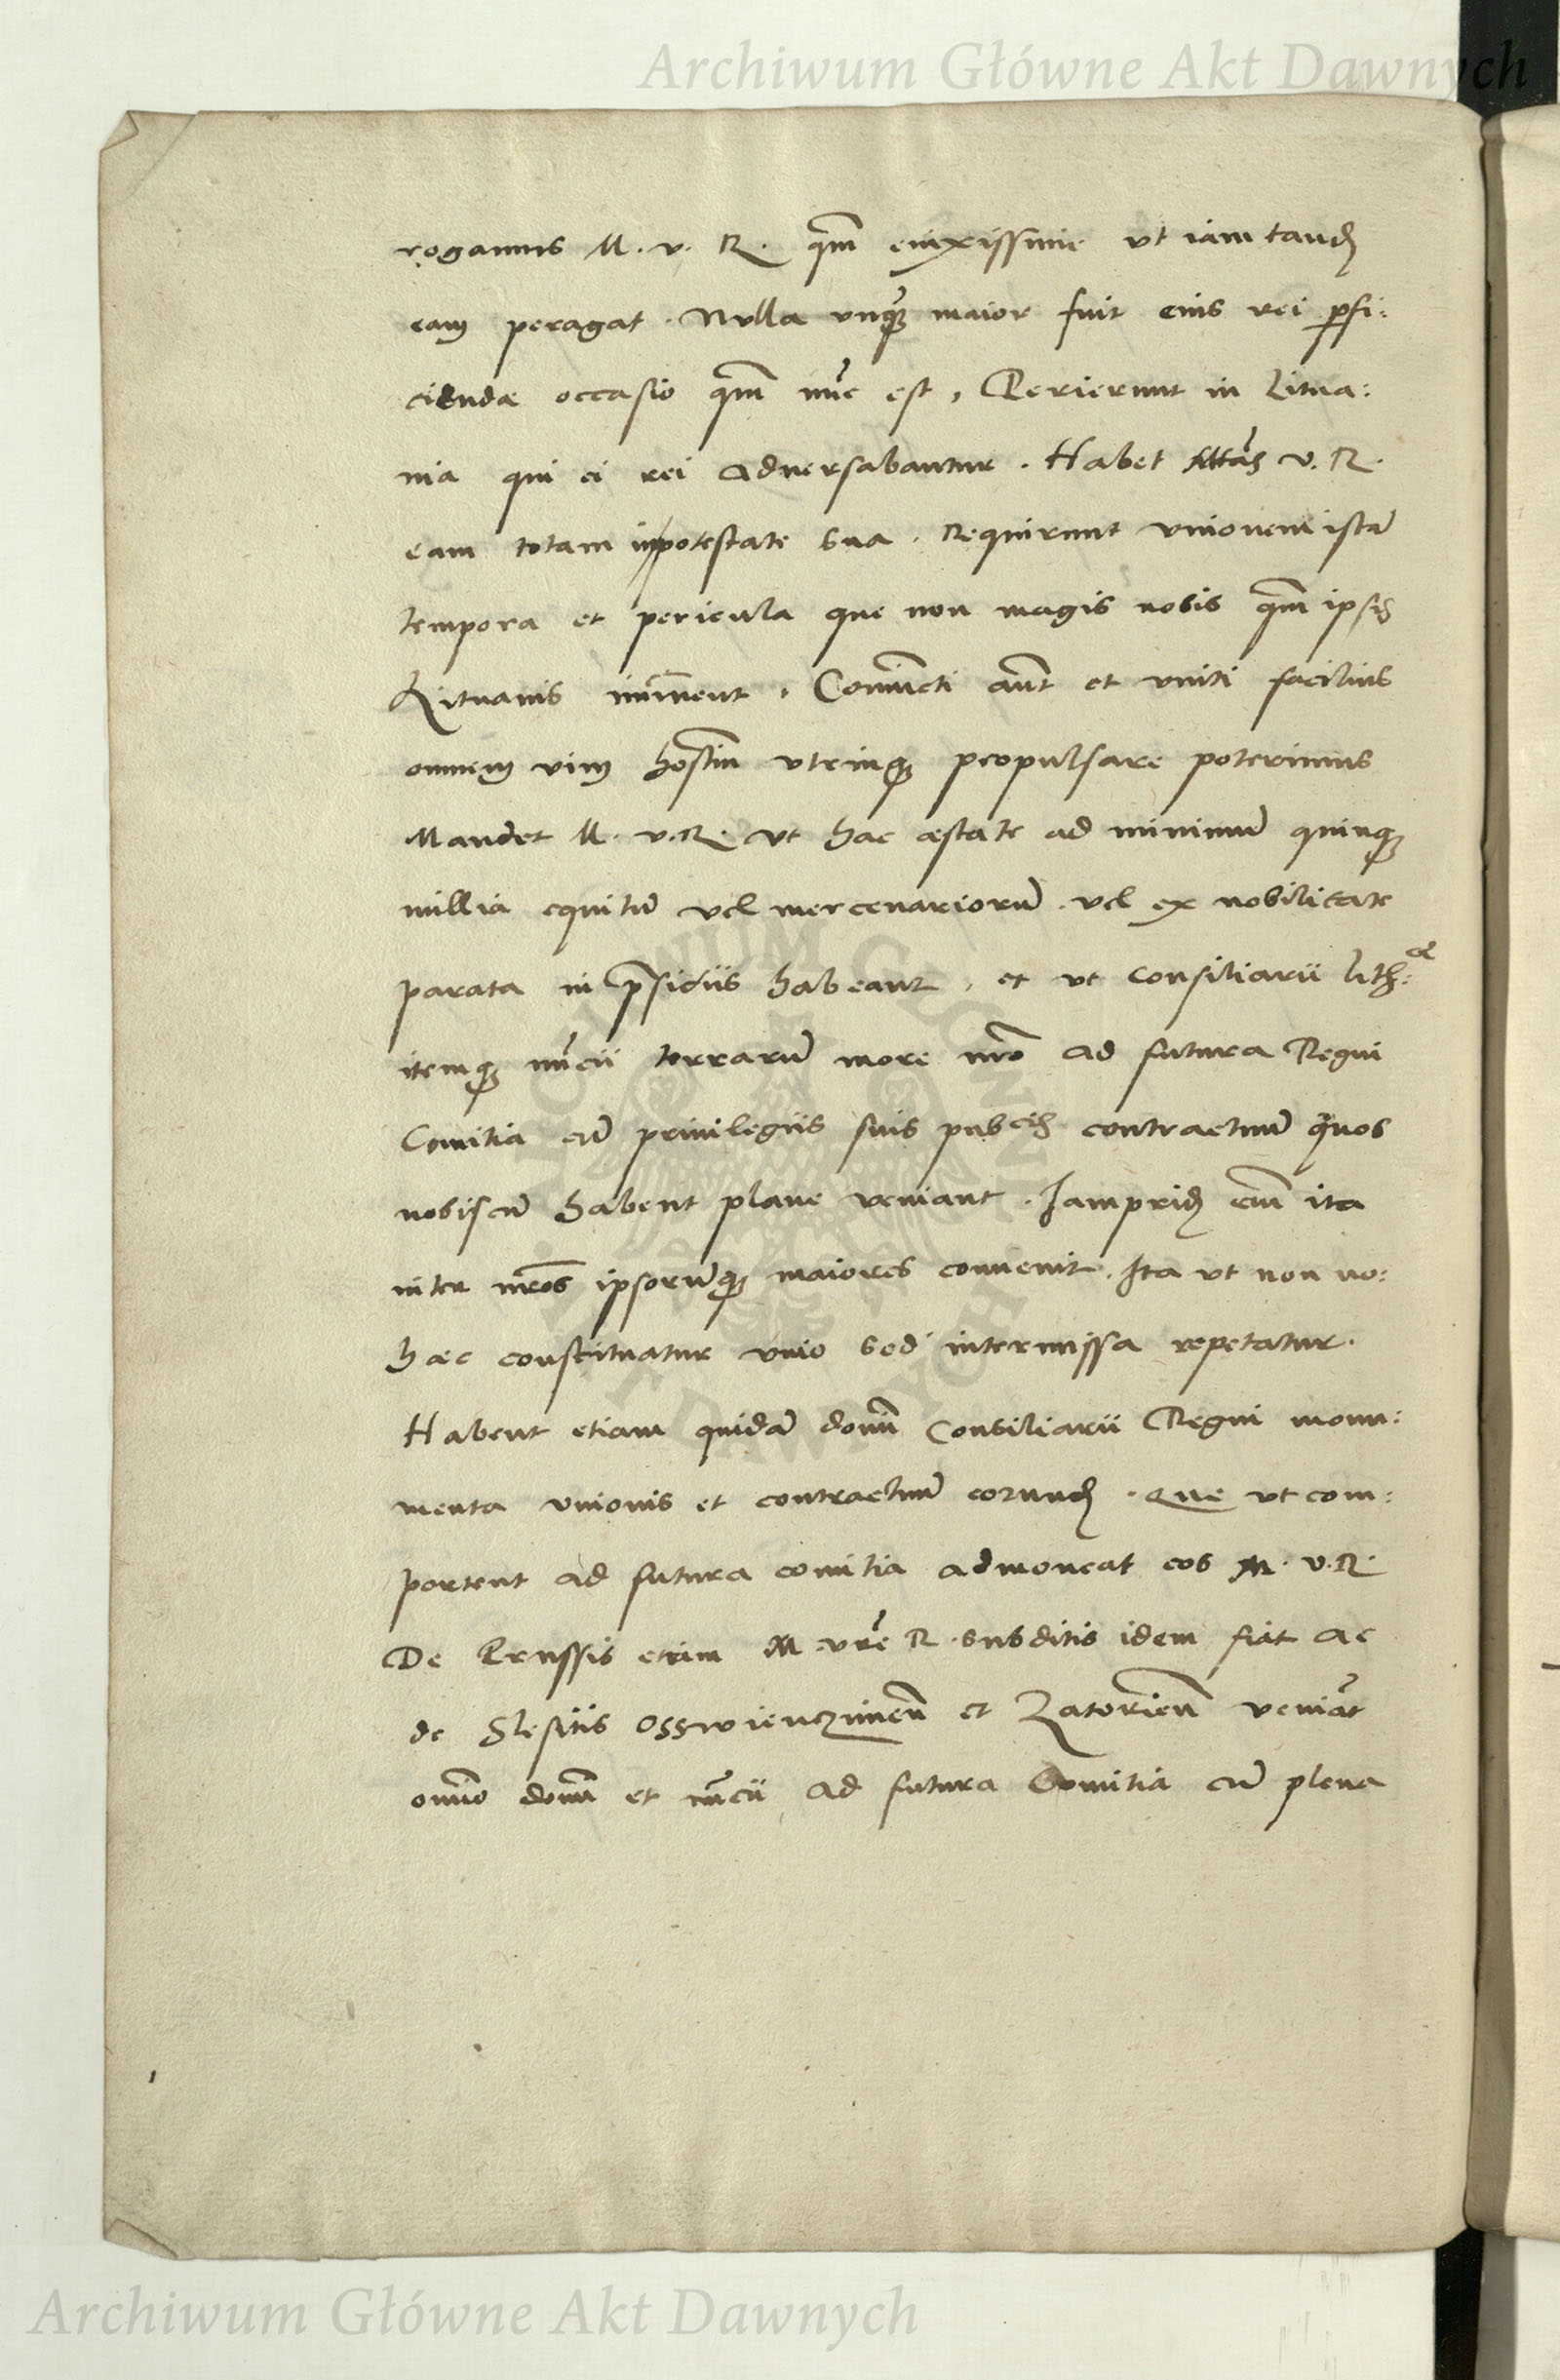 Archiwum Główne Akt Dawnych
rogamus M. v. R. qm̃ enixissime vt iam tandẽ
eam peragat. Nulla vnqꝫ maior fuit eius rei ꝑfi:
ciendæ occasio qm̃ nũc est, Perierunt in Litua:
nia qui ei rei aduersabantur. Habet Mtãs v. R.
eam totam in potestate sua. Requirunt vnionem istã
tempora et pericula que non magis nobis qm̃ ipsis
Lituanis imminent, Coniũcti aũt et vniti facilius
omnem vim hostiũ vtrinqꝫ propulsare poterimus
Mandet M. v. R. vt hac æstate ad minimũ quinqꝫ
millia equitũ vel mercenariorũ vel ex nobilitate
parata in p̃sidiis habeant, et vt consiliarii Lith:æ
itemqꝫ nũcii terrarũ more nr̃o ad futura Regni
Comitia cũ priuilegiis suis pubcis contractuũ quos
nobiscũ habent plane veniant. Iampridẽ eni̇̃ ita
inter nr̃os ipsorũqꝫ maiores conuenit. Ita vt non no:
hæc constituatur vnio sed intermissa repetatur.
Habent etiam quidã domĩ Consiliarii Regni monu:
menta vnionis et contractuũ eorundẽ. Que vt com:
portent ad futura comitia admoneat eos M. v. R.
De Prussis etiam M. vrẽ R. subditis idem fiat ac
de Slesitis Osswienczimeñ et Zatorieñ veniãt
omnĩo domĩ et nũcii ad futura Comitia cũ plena
Archiwum Główne Akt Dawnych